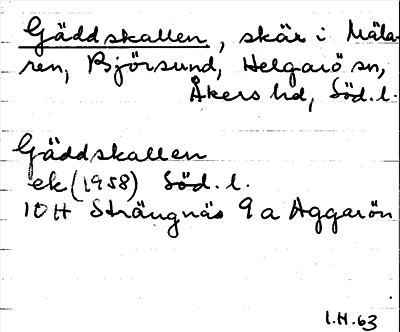 Gäddskallen, skär i Mäla-
ren, Björsund, Helgarö sn,
Åkers hd, Söd. l.
Gäddskallen
ek (1958) Söd. l.
10 H Strängnäs 9 a Aggarön
I.H.63